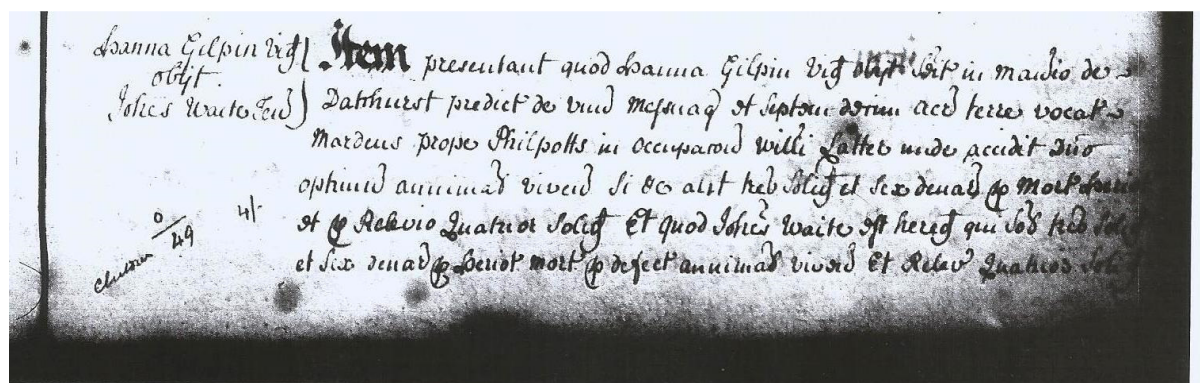 Hanna Gilpin Vid
obijt
Johes Waite Ten
o/49
4/-
Item presentant quod Hanna Gilpin Vid obijt seit in manio de
Datchurst predict de vnu mesuag et septem decem acr terre vocat
Mardens prope Philpotts in occupatoe Willi Latter unde accidit dno
optimu annimal viven si &c alit tres solid et sex denar p mort heriot
et p Relevio Quatuor solid Et quod Johes Waite est hered qui sol tres solid
et sex denar p heriot mort p defect annimal viven Et Relev Quatuor solid